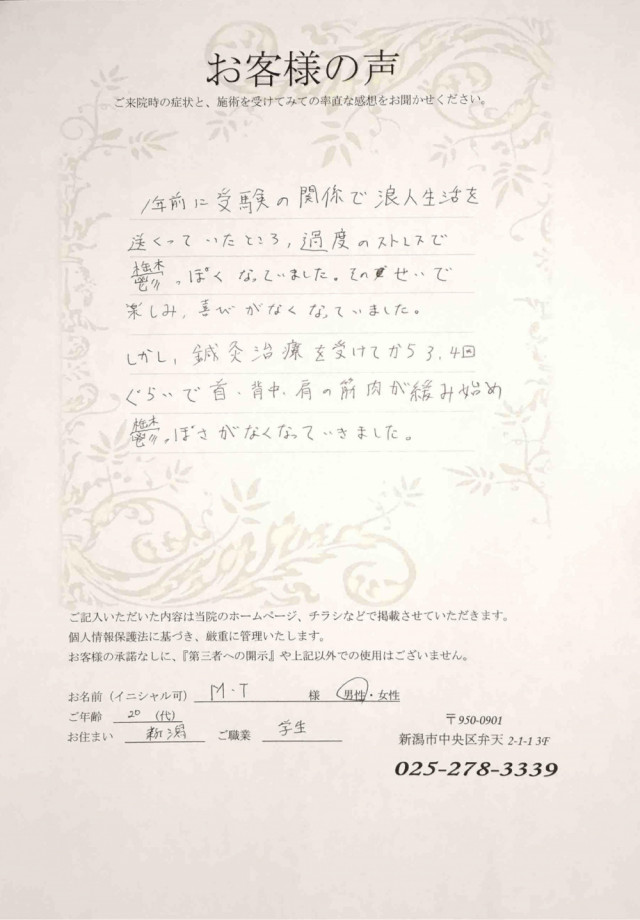 お客様の声
ご来院時の症状と、施術を受けてみての率直な感想をお聞かせください。
1年前に受験の関係で浪人生活を
送くっていたところ、過度のストレスで
鬱っぽくなっていました。そのせいで
楽しみ、喜びがなくなっていました。
しかし、鍼灸治療を受けてから3、4回
ぐらいで首、背中、肩の筋肉が緩み始め
鬱っぽさがなくなっていきました。
ご記入いただいた内容は当院のホームページ、チラシなどで掲載させていただきます。
個人情報保護法に基づき、厳重に管理いたします。
お客様の承諾なしに、『第三者への開示』や上記以外での使用はございません。
お名前（イニシャル可） M・T 様 男性・女性
ご年齢 20 (代)
〒950-0901
お住まい 新潟 ご職業 学生
新潟市中央区弁天 2-1-1 3F
025-278-3339